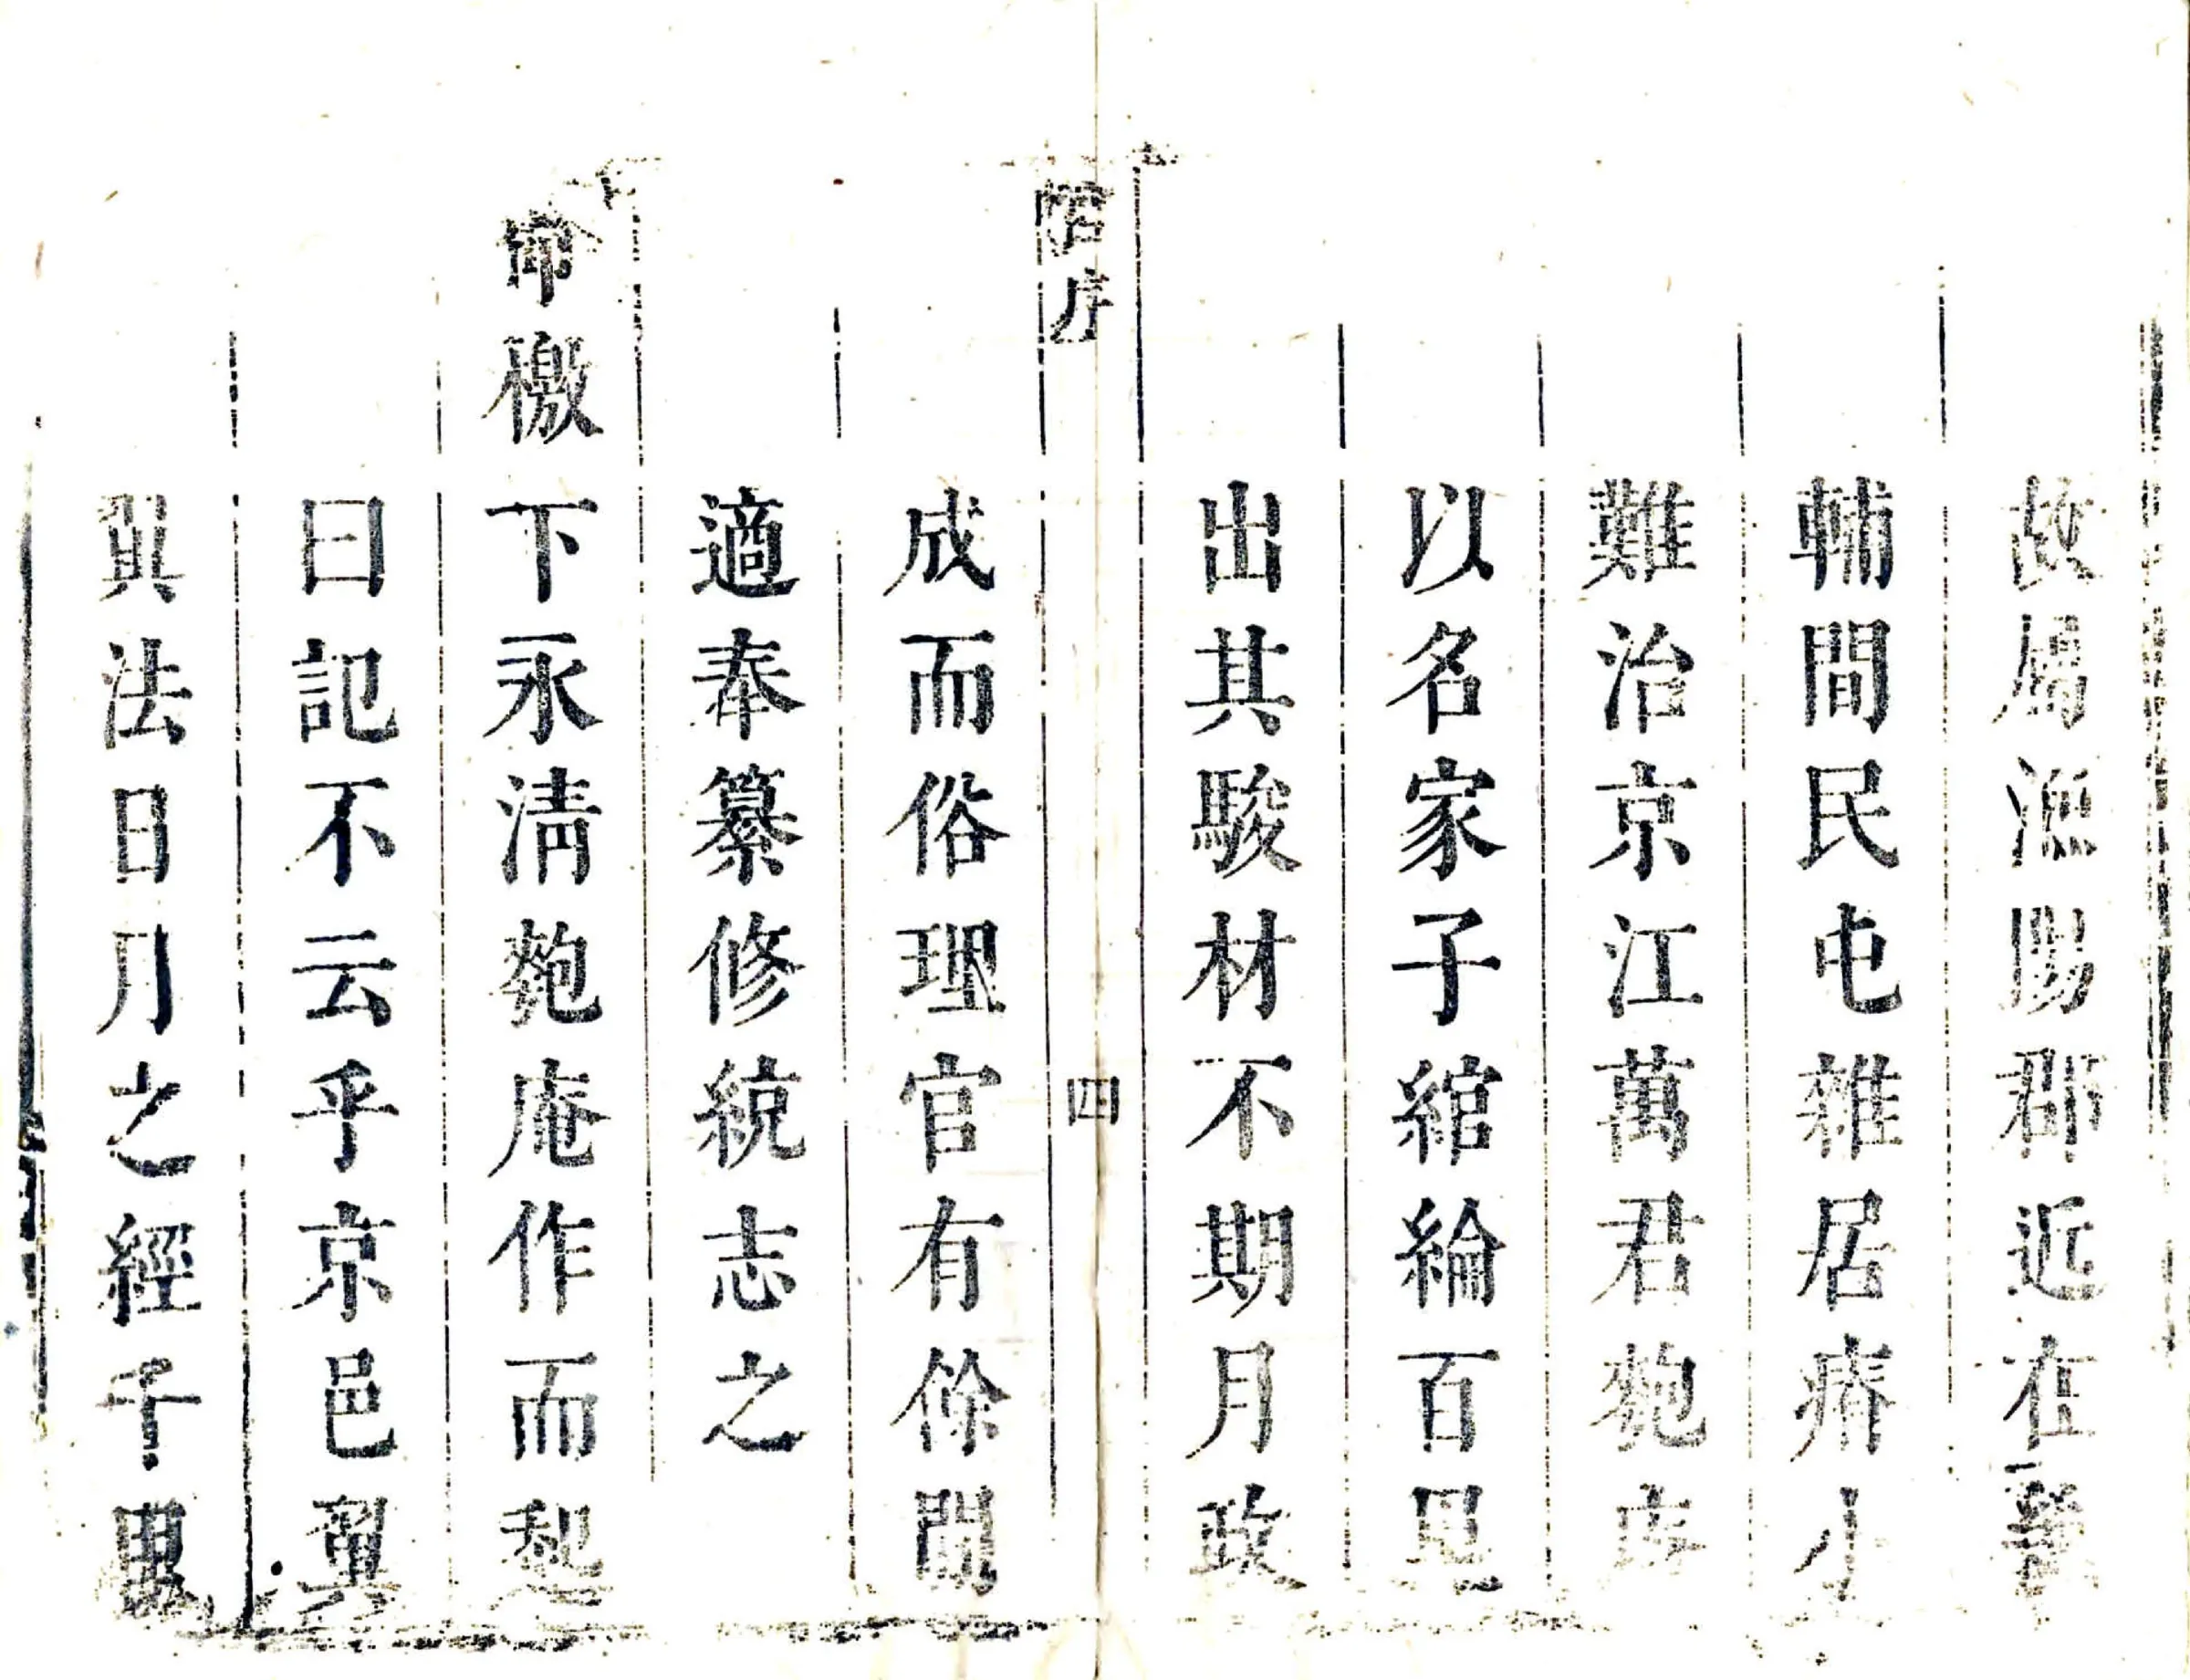 故屬漁陽郡近在
輔間民屯雜居瘠小
難治京江萬君匏
以名家子綰綸百里
出其駿材不期月政
四
成而俗理官有餘閒
適奉纂修統志之
檄下永清匏庵作而
曰記不云乎京邑翼
翼法日月之經千里